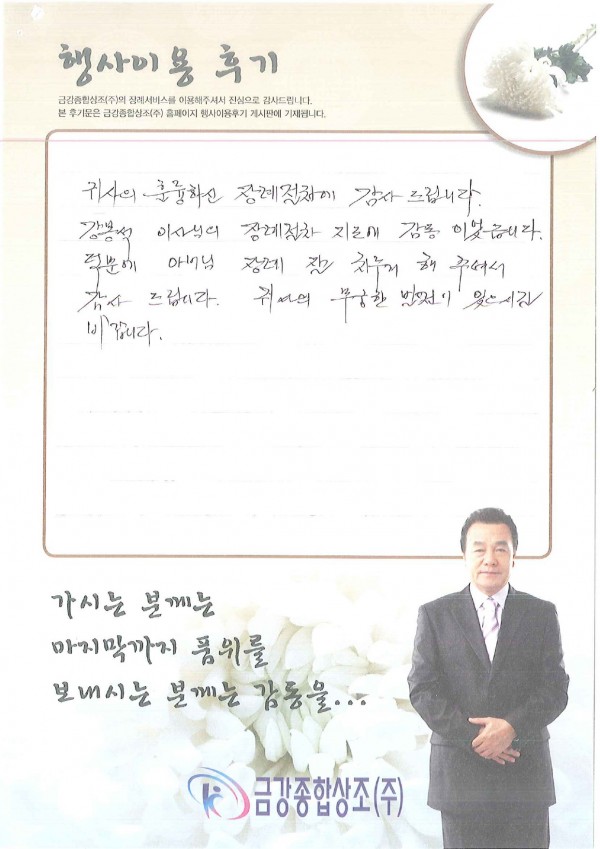 행사이용 후기
금강종합상조(주)의 장례서비스를 이용해주셔서 진심으로 감사드립니다.
본 후기문은 금강종합상조(주) 홈페이지 행사이용후기 게시판에 기재됩니다.
귀사의 훌륭하신 장례절차에 감사 드립니다.
강봉석 이사님의 장례절차 지도에 감동 이었습니다.
덕분에 아버님 장례 잘 치루게 해 주셔서
감사 드립니다. 귀사의 무궁한 발전이 있으시길
바랍니다.
가시는 분께는
마지막까지 품위를
보내시는 분께는 감동을...
금강종합상조(주)